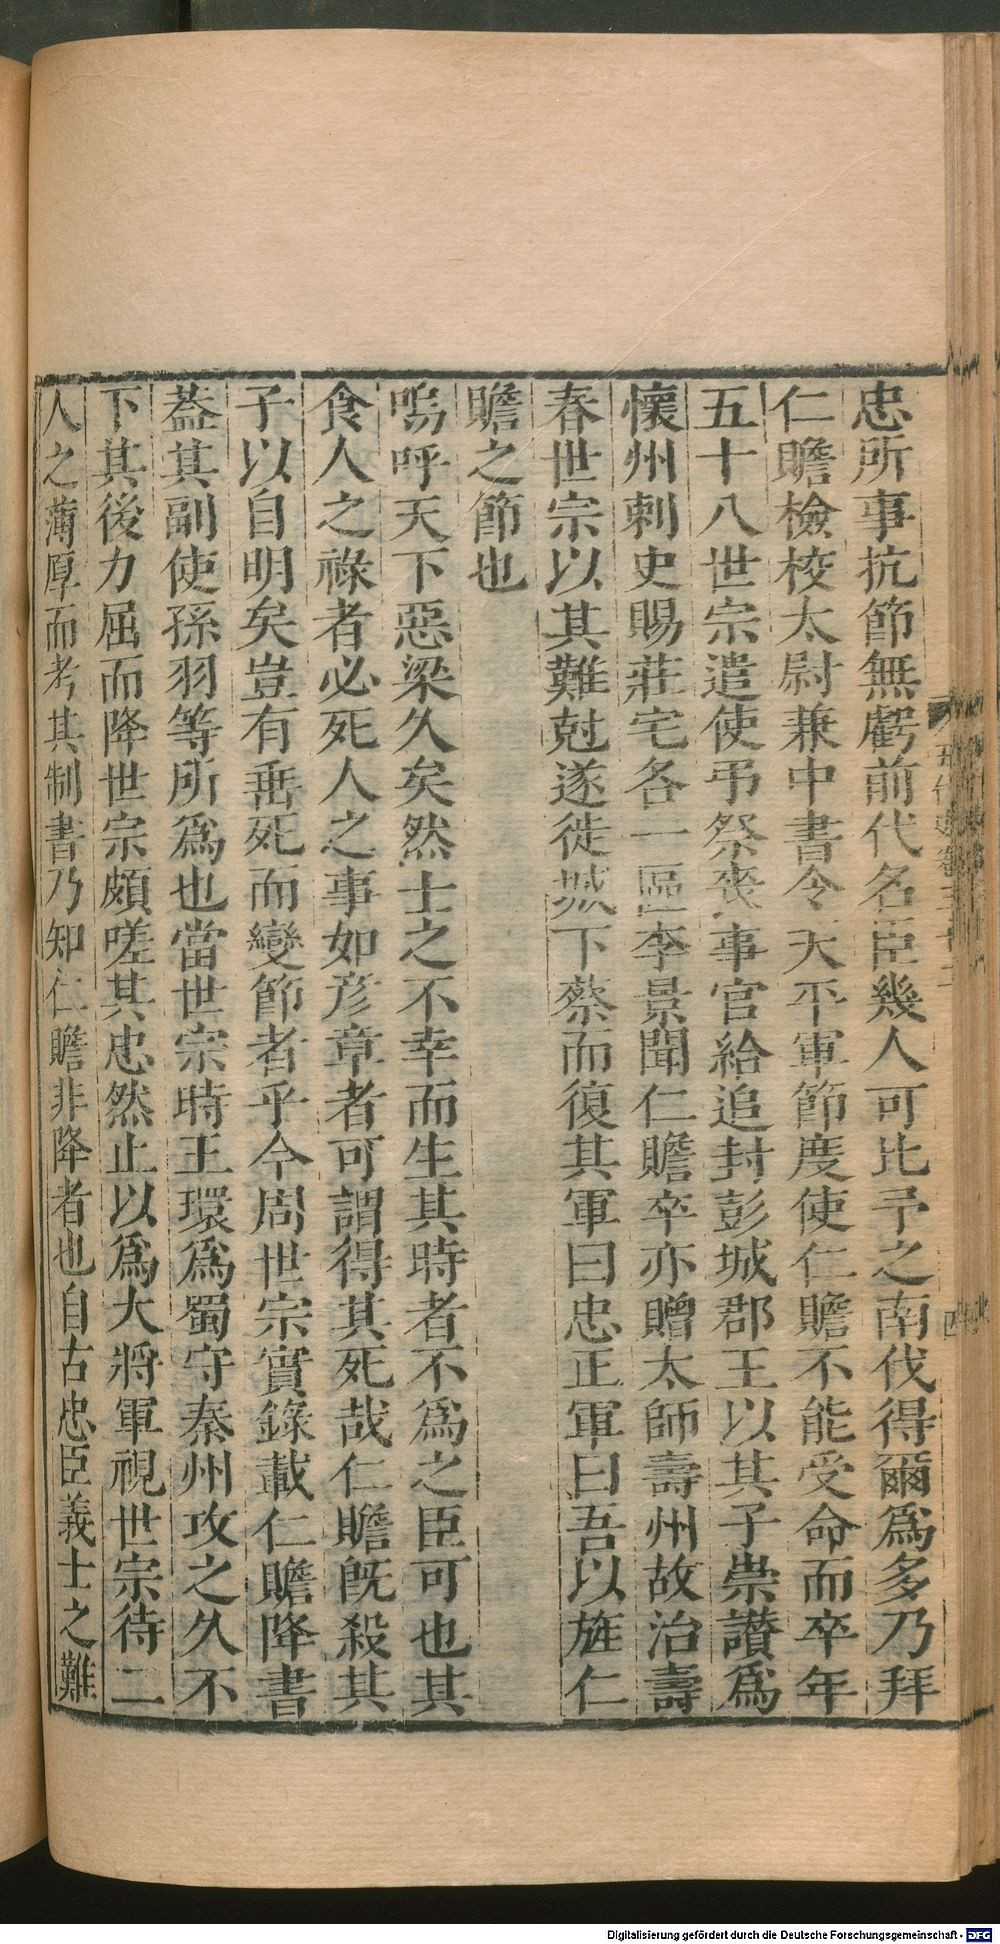 忠所事抗節無虧前代名臣幾人可比予之南伐得爾爲多乃拜
仁贍檢校太尉兼中書令天平軍節度使仁贍不能受命而卒年
五十八世宗遣使弔祭喪事官給追封彭城郡王以其子崇讚爲
懷州刺史賜莊宅各一區李景聞仁贍卒亦贈太師壽州故治壽
春世宗以其難尅遂徙城下蔡而復其軍曰忠正軍曰吾以旌仁
贍之節也
嗚呼天下惡梁久矣然士之不幸而生其時者不爲之臣可也其
食人之祿者必死人之事如彦章者可謂得其死哉仁贍旣殺其
子以自明矣豈有垂死而變節者乎今周世宗實錄載仁贍降書
葢其副使孫羽等所爲也當世宗時王環爲蜀守秦州攻之久不
下其後力屈而降世宗頗嗟其忠然止以爲大將軍視世宗待二
人之薄厚而考其制書乃知仁贍非降者也自古忠臣義士之難
Digitalisierung gefördert durch die Deutsche Forschungsgemeinschaft - DFG